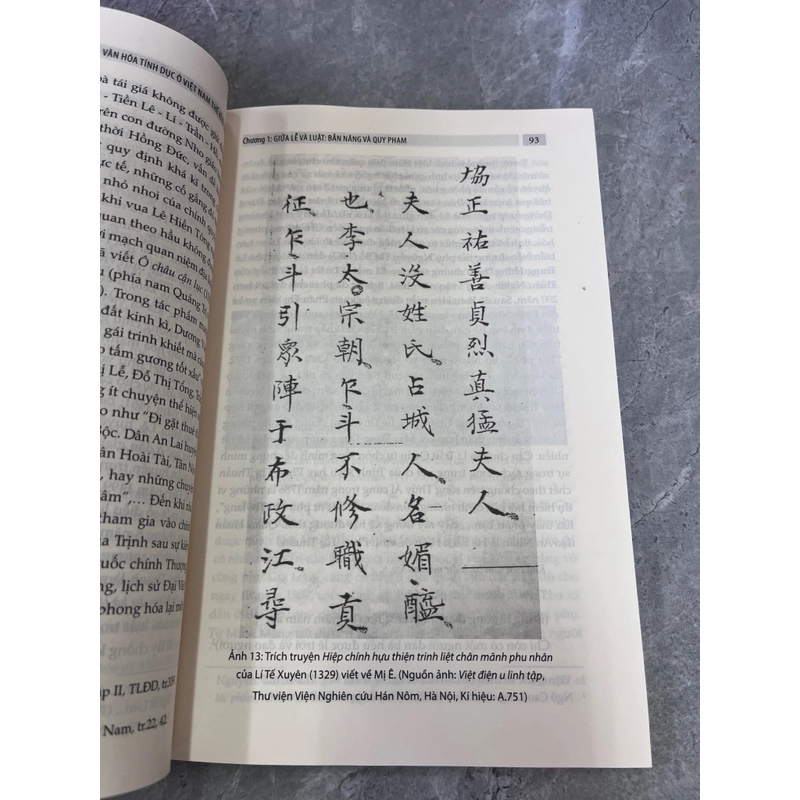 VĂN HÓA TÍNH DỤC Ở VIỆT NAM THẾ
bà tái giá không được
- Tiền Lê - Lí - Trần - Hồ
trên con đường Nho
thời Hồng Đức, vấn đề
quy định khá kĩ trong
tế, những cố gắng
nhỏ nhoi của chính
khi vua Lê Hiến Tông
quan theo hầu không
mạch quan niệm địa
viết Ô châu cận lục
(phía nam Quảng
Trong tác phẩm
đất kinh kì, Dương
gái trinh khiết mà
tấm gương tốt xấu"
Lễ, Đỗ Thị Tống,
ít chuyện thể hiện
như "Đi gặt thuê
Dân An Lai huyện
Hoài Tài, Tân
hay những chuyện
Đến khi
tham gia vào chính
Trịnh sau sự kiện
chính Thượng
lịch sử Đại Việt
phong hóa lại
II, TLĐD, tr.
Nam, tr.22, 42
Chương 1: GIỮA LỄ VÀ LUẬT: BẢN NĂNG VÀ QUY PHẠM 93
恊正祐善貞烈真猛夫人
夫人没姓氏占城人名媚醯
也李太宗朝乍斗不修職貢
征乍斗引衆陣于布政江尋
Ảnh 13: Trích truyện Hiệp chính hựu thiện trinh liệt chân mãnh phu nhân
của Lí Tế Xuyên (1329) viết về Mị Ê. (Nguồn ảnh: Việt điện u linh tập,
Thư viện Viện Nghiên cứu Hán Nôm, Hà Nội, Kí hiệu: A.751)